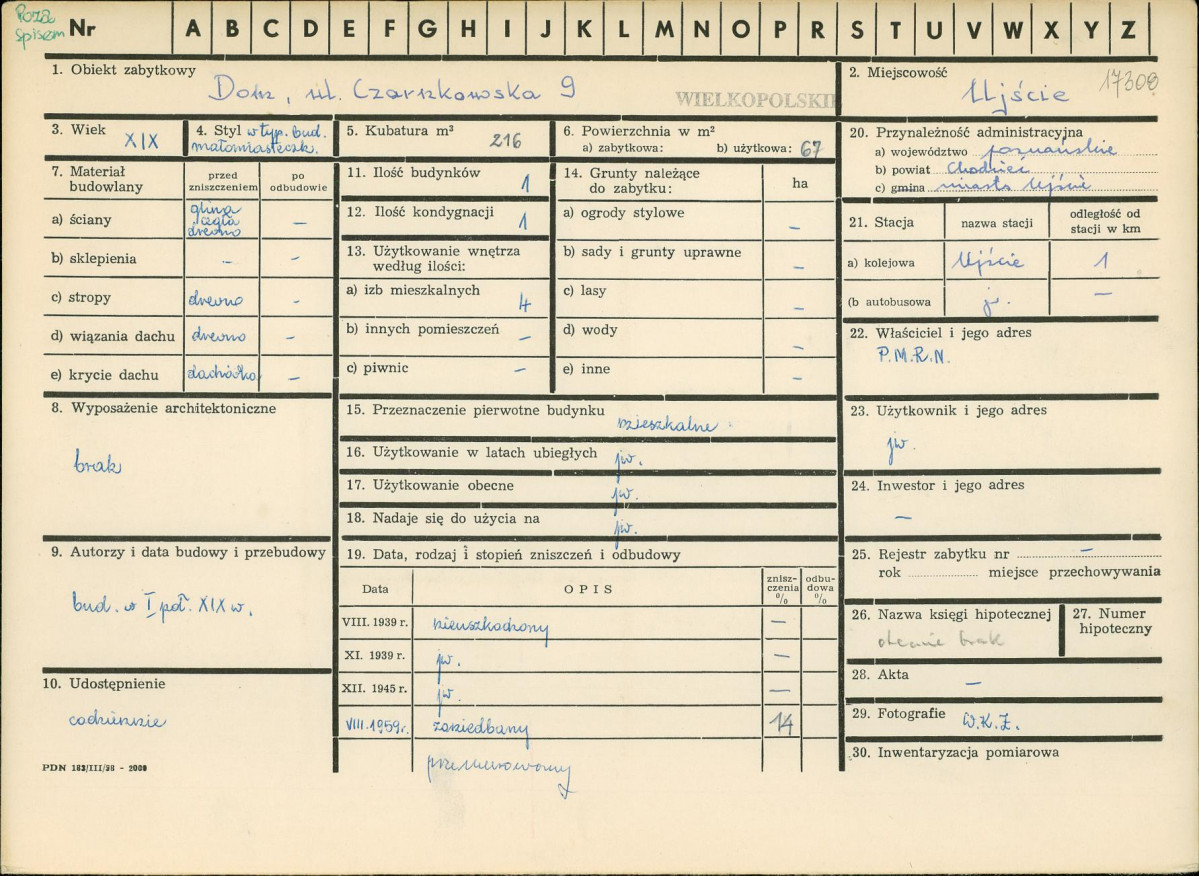 Poza
spisem
Nr A B C D E F G H I J K L M N O P R S T U V W X Y Z
1. Obiekt zabytkowy
Dom, ul. Czarnkowska 9
WIELKOPOLSKI
2. Miejscowość
17308
Ujście
3. Wiek
XIX
4. Styl w typ. bud.
małomiasteczk.
5. Kubatura m³
216
6. Powierzchnia w m²
a) zabytkowa: b) użytkowa: 67
7. Materiał
budowlany
przed
zniszczeniem
po
odbudowie
a) ściany
glina
cegła
drewno
–
b) sklepienia – –
c) stropy drewno –
d) wiązania dachu drewno –
e) krycie dachu dachówka –
8. Wyposażenie architektoniczne
brak
9. Autorzy i data budowy i przebudowy
bud. w I poł. XIX w.
10. Udostępnienie
codziennie
PDN 183/III/58 - 2000
11. Ilość budynków 1
12. Ilość kondygnacji 1
13. Użytkowanie wnętrza
według ilości:
a) izb mieszkalnych 4
b) innych pomieszczeń –
c) piwnic –
14. Grunty należące
do zabytku:
ha
a) ogrody stylowe –
b) sady i grunty uprawne –
c) lasy –
d) wody –
e) inne –
15. Przeznaczenie pierwotne budynku
mieszkalne
16. Użytkowanie w latach ubiegłych jw.
17. Użytkowanie obecne jw.
18. Nadaje się do użycia na jw.
19. Data, rodzaj i stopień zniszczeń i odbudowy
Data OPIS
znisz-
czenia
%
odbu-
dowa
%
VIII. 1939 r. nieuszkodzony –
XI. 1939 r. jw. –
XII. 1945 r. jw. –
VIII.1959r. zaniedbany 14
przemurowany
20. Przynależność administracyjna
a) województwo poznańskie
b) powiat Chodzież
c) gmina miasto Ujście
21. Stacja nazwa stacji
odległość od
stacji w km
a) kolejowa Ujście 1
(b autobusowa jw. –
22. Właściciel i jego adres
P.M.R.N.
23. Użytkownik i jego adres
jw.
24. Inwestor i jego adres
–
25. Rejestr zabytku nr –
rok miejsce przechowywania
26. Nazwa księgi hipotecznej
obecnie brak
27. Numer
hipoteczny
28. Akta
–
29. Fotografie W.K.Z.
30. Inwentaryzacja pomiarowa